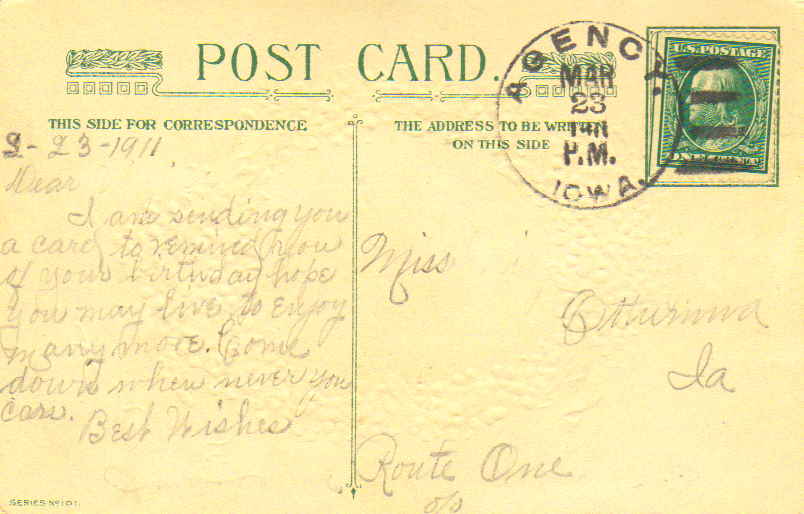 POST CARD.
THIS SIDE FOR CORRESPONDENCE
THE ADDRESS TO BE WRITTEN
ON THIS SIDE
AGENCY,
MAR
23
P.M.
IOWA.
U.S. POSTAGE
2-23-1911
Dear
I am sending you
a card to remind you
of your birthday hope
you may live to enjoy
many more. Come
down when never you
can.
Best Wishes
Miss
Ottumwa
Ia
Route One
SERIES No 101.